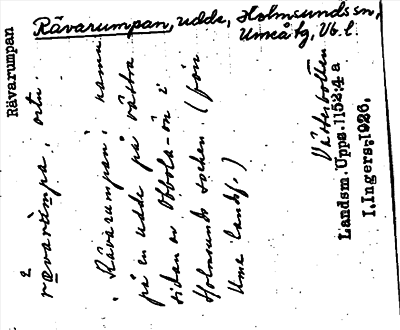 Rävarumpan
Rävarumpan, udde, Holmsunds sn,
Umeå tg, Vb. l.
2
rævarùmpa, ortn.
"Rävarumpan", namn
på en udde på västra
sidan av Obbola-ön i
Holmsunds socken (från
Umeå landsf.)
Västerbotten
Landsm. Upps. 1152:4 a
I. Ingers, 1926.